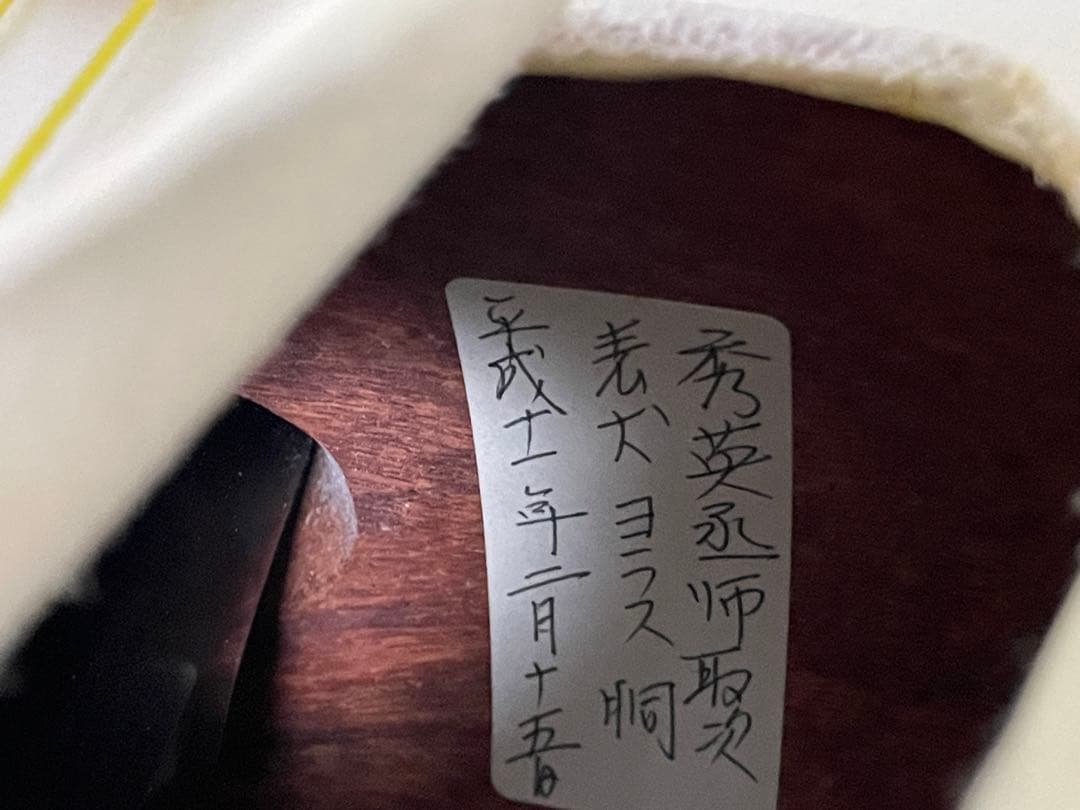 秀英丞师取次
表犬 ヨラス 胴
平成十一年二月十五日